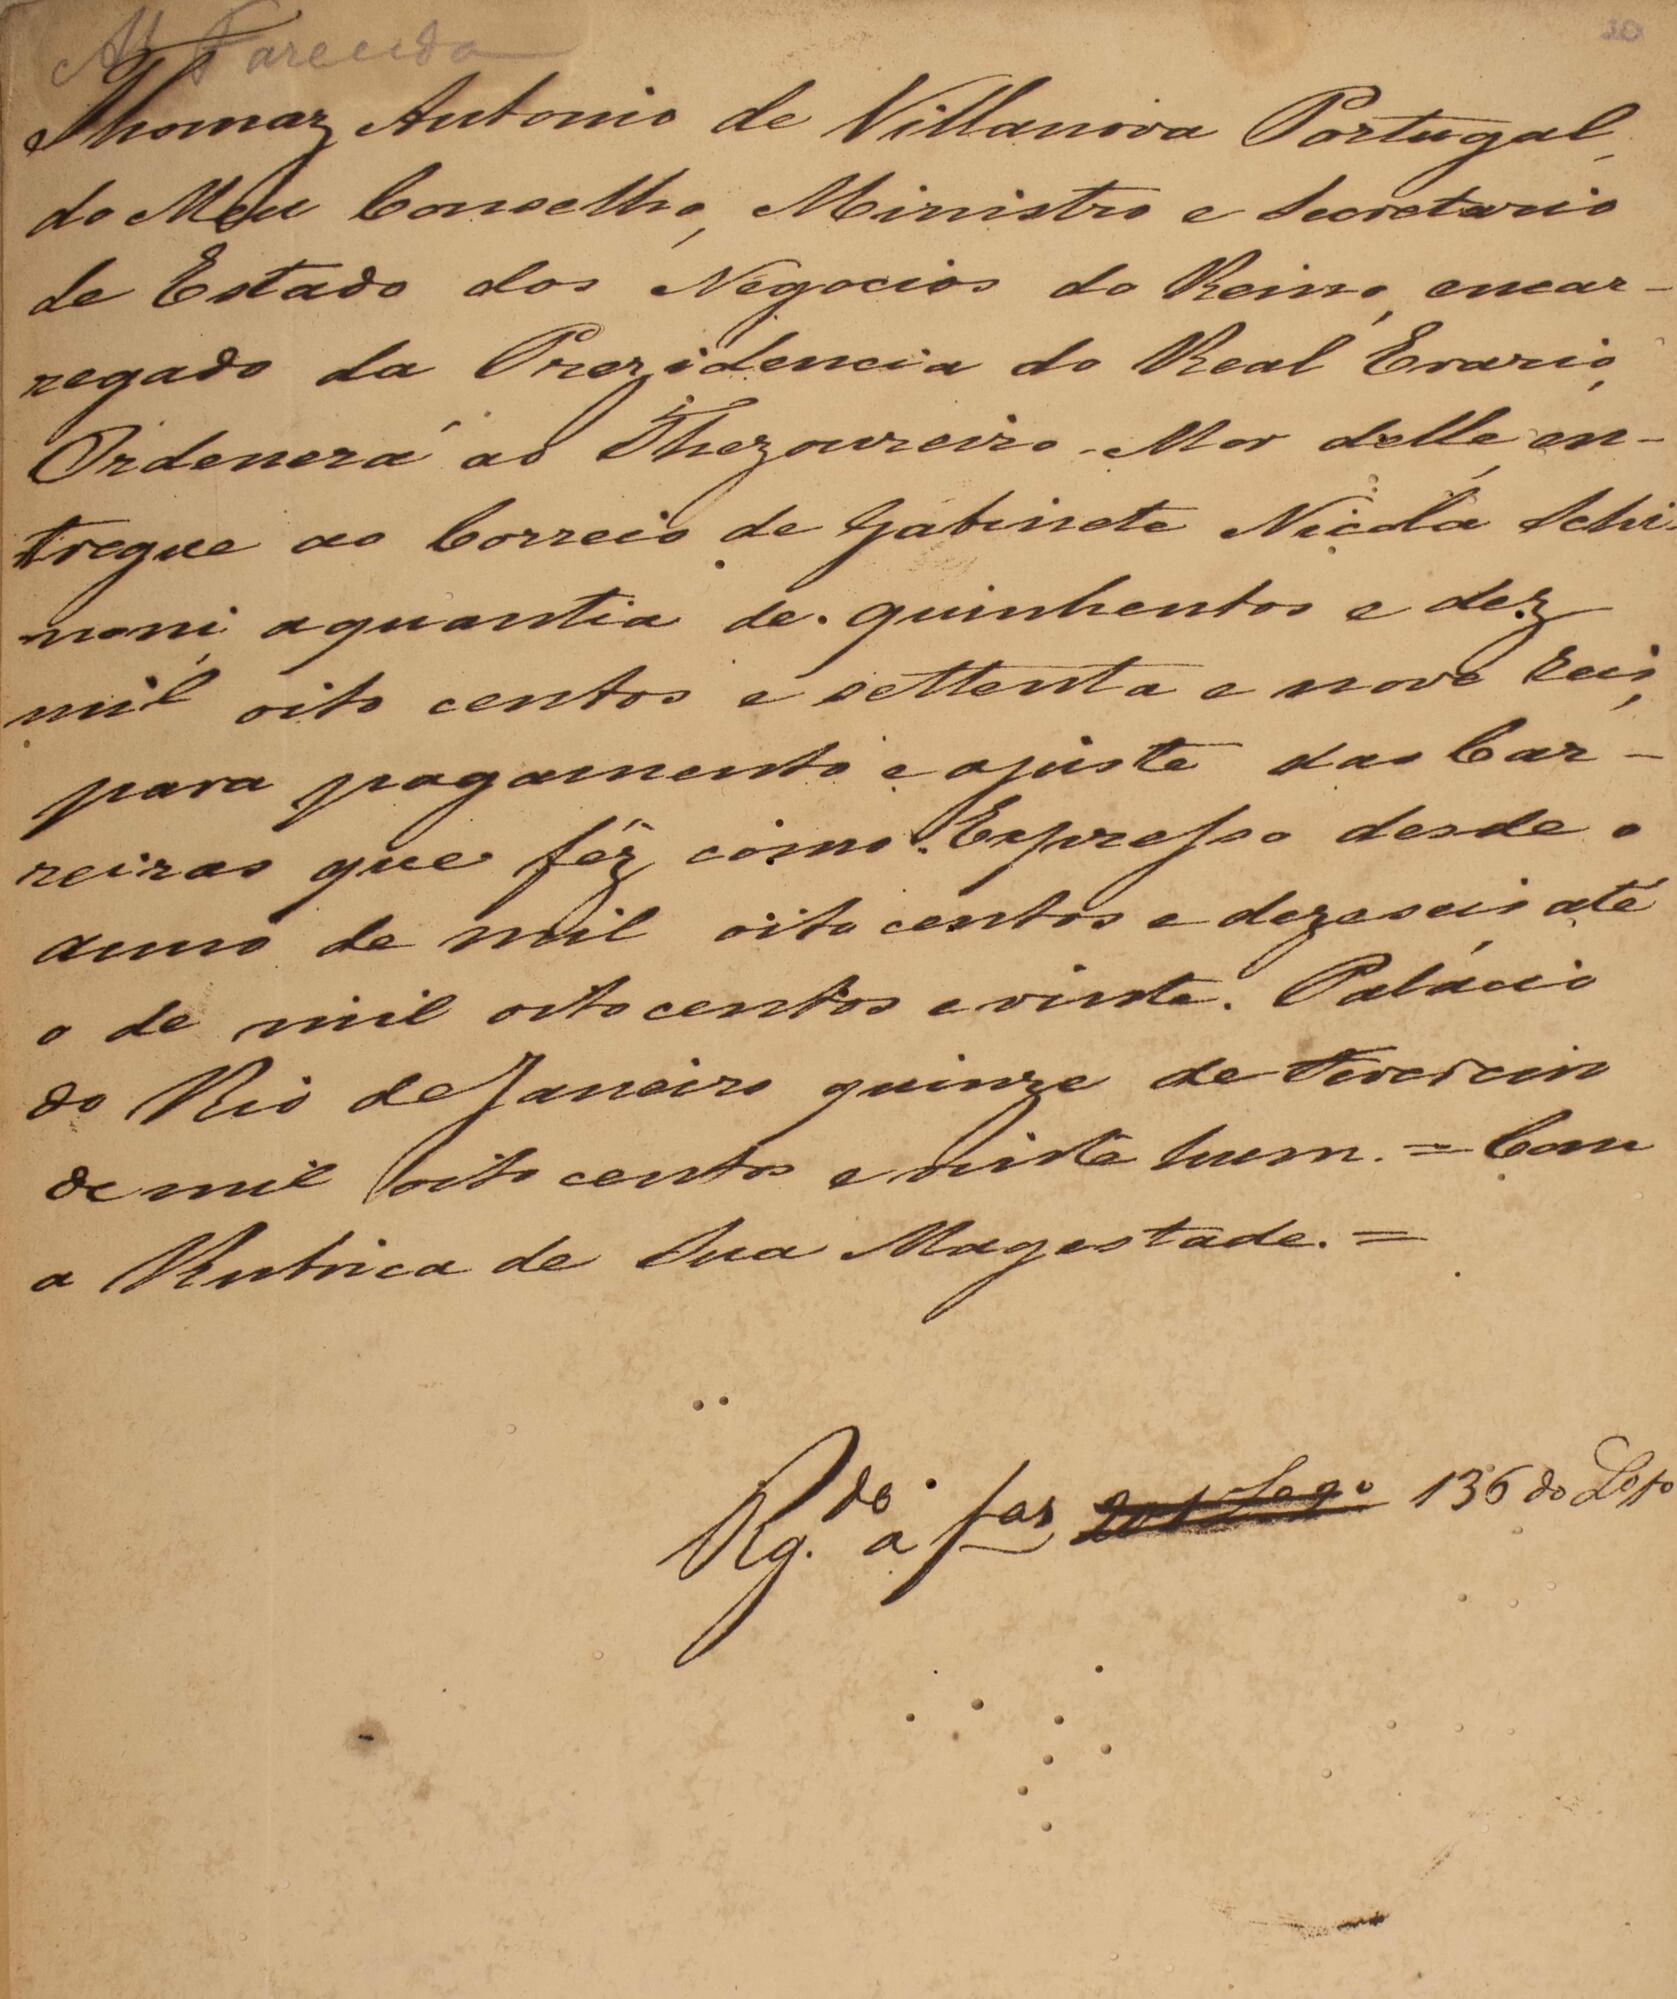 M Fazenda
20
Thomaz Antonio de Villanova Portugal,
do Meu Conselho, Ministro e Secretario
de Estado dos Negocios do Reino, encar-
regado da Prezidencia do Real Erario,
Ordenerá ao Thezoureiro-Mor delle, en-
tregue ao Correio de Gabinete Nicolá Schi-
noni, aquantia de quinhentos e dez
mil oito centos e settenta e nove reis,
para pagamento e ajuste das Car-
reiras que fêz como Expresso desde o
anno de mil oito centos e dezeseis, até
o de mil oito centos e vinte. Palácio
do Rio de Janeiro quinze de Fevereiro
de mil oito centos e vinte hum. = Com
a Rubrica de Sua Magestade. =
Rg.do a fas 136 do L.º 1º